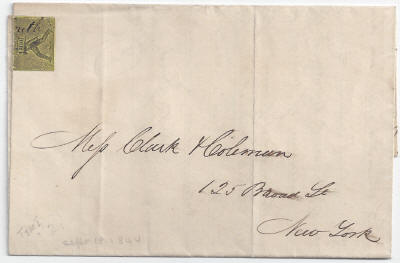 Mess Clark & Coleman
125 Broad St
New York
Sept 18. 1844